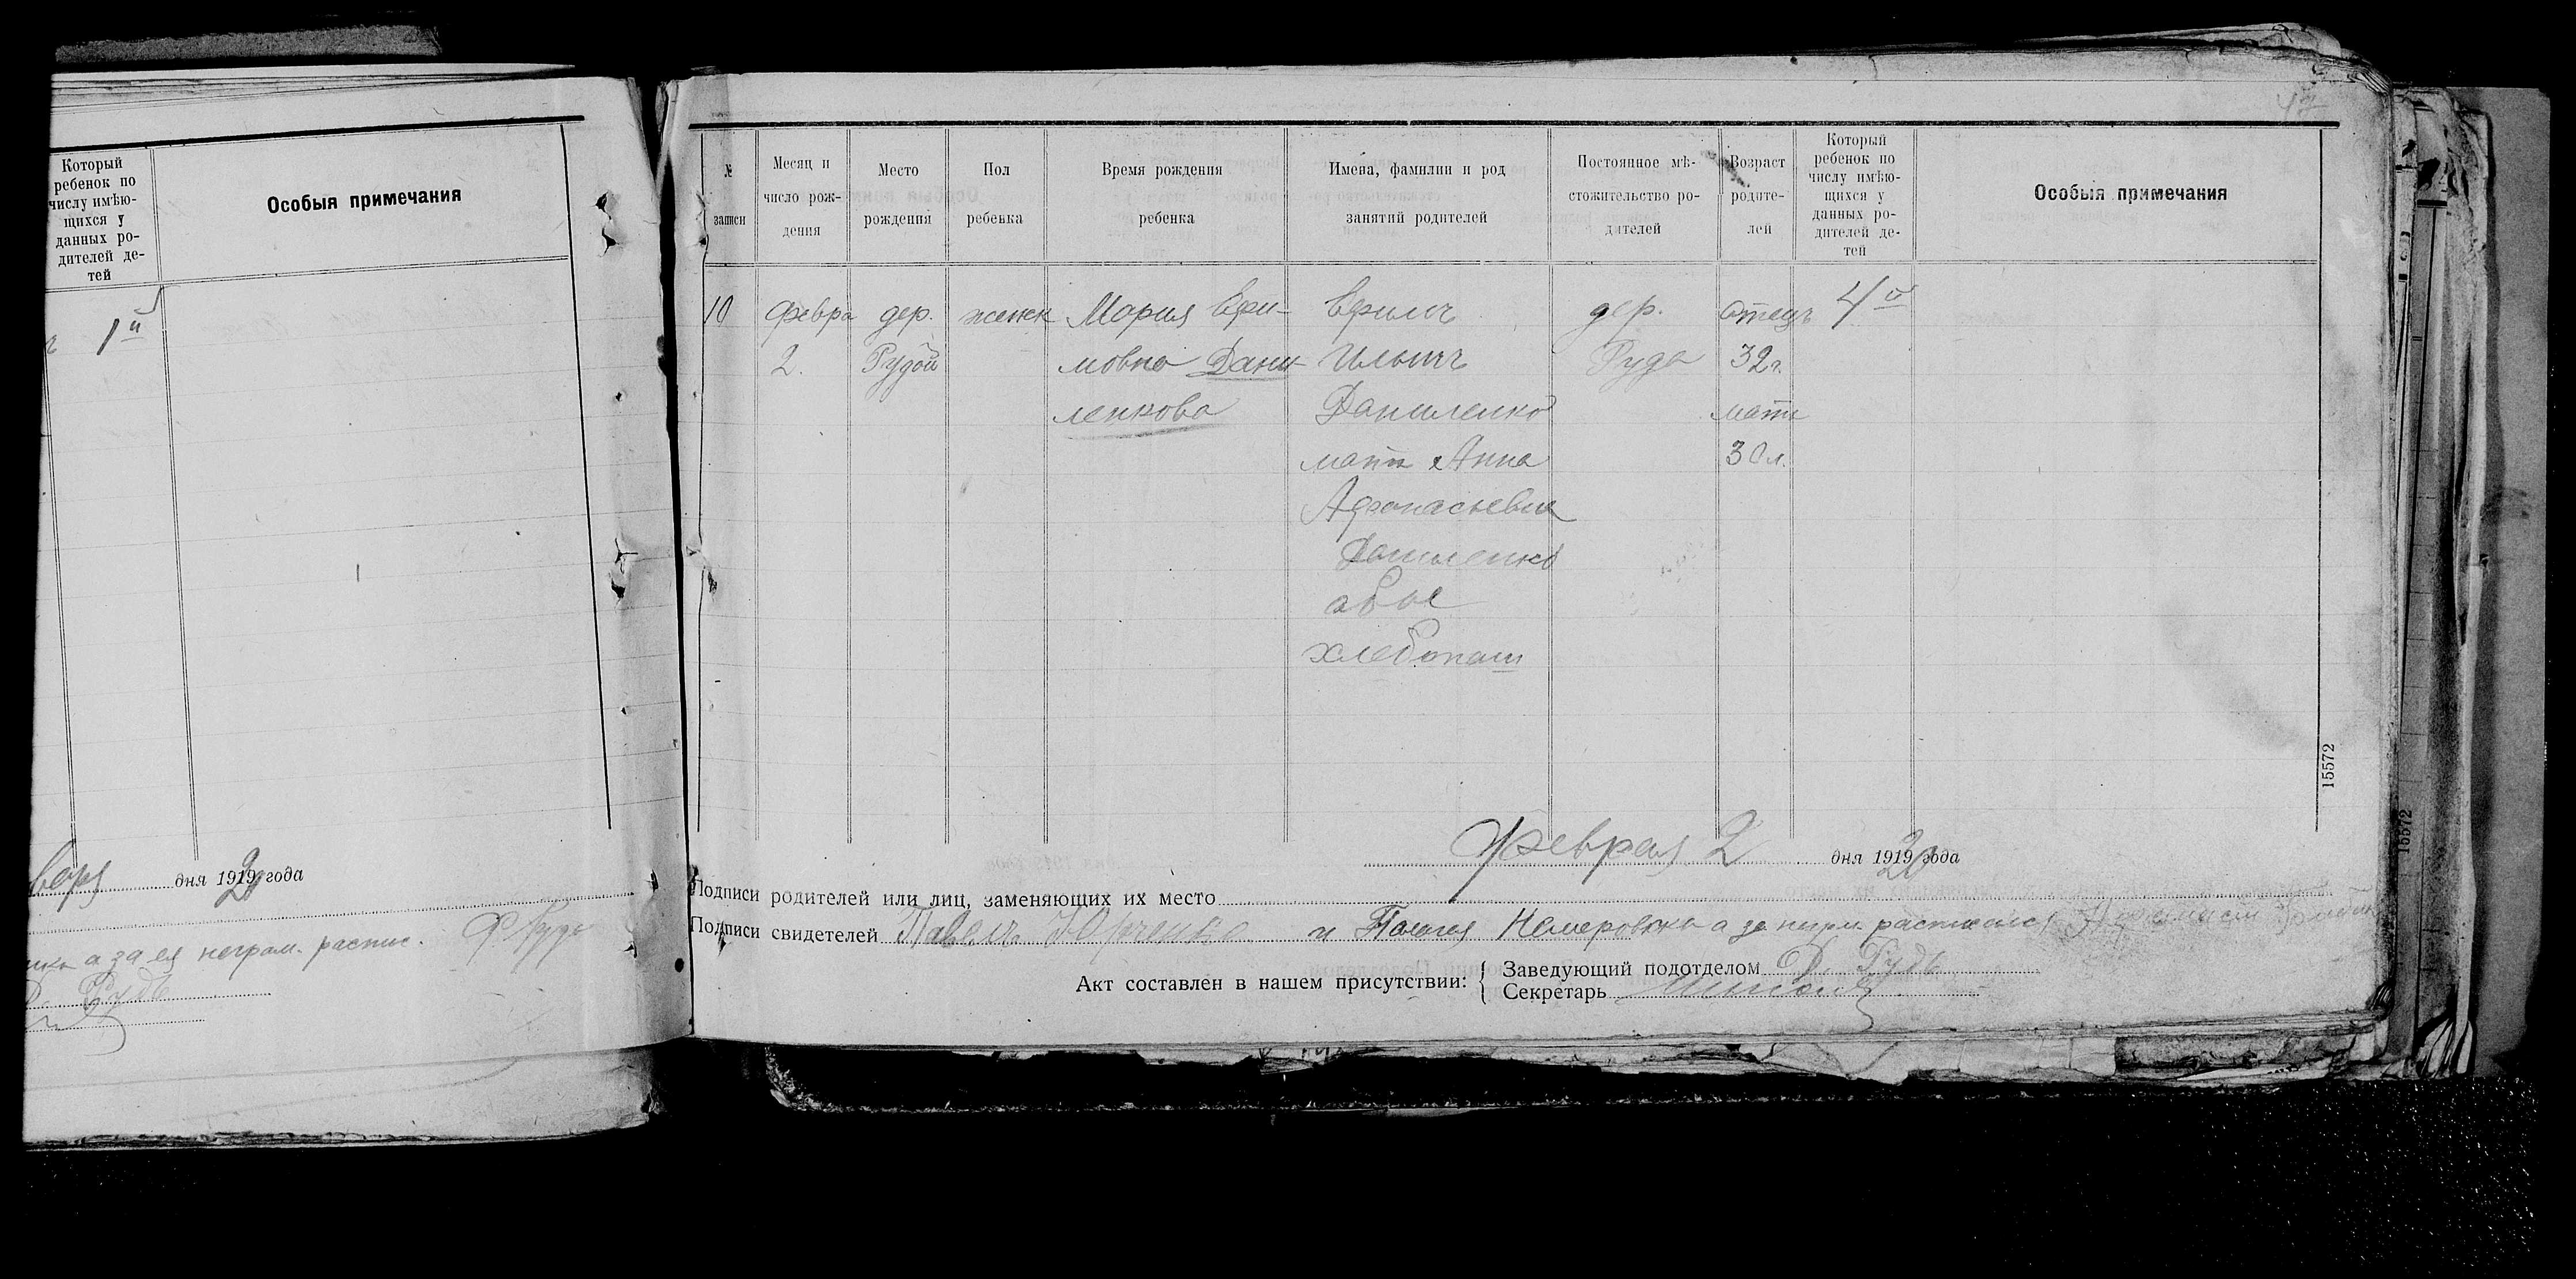 Который
ребенок по
числу имѣю-
щихся у
данных ро-
дителей де-
тей
Особыя примечания
1й
варя дня 1919 года
20
а за ея неграм. распис. Ф Рудь
Рудь
№
записи
Месяц и
число рож-
дения
Место
рождения
Пол
ребенка
Время рождения
ребенка
Имена, фамилии и род
занятий родителей
Постоянное мѣ-
стожительство ро-
дителей
Возраст
родите-
лей
Который
ребенок по
числу имѣю-
щихся у
данных ро-
дителей де-
тей
Особыя примечания
10 Февра дер. женск Мария Ефи- Ефимъ дер. Отецъ 4й
2. Рудой мовна Дани- Ильичъ Руда 32 г.
ленкова Даниленко мать
мать Анна 30 л.
Афонасьевна
Даниленко
обое
хлебопаш
15572
15572
Февраля 2 дня 1919 года
20
Подписи родителей или лиц, заменяющих их место
Подписи свидетелей Павелъ Юрченко и а за негрм. расписался
Акт составлен в нашем присутствии:
Заведующий подотделом Рудь
Секретарь